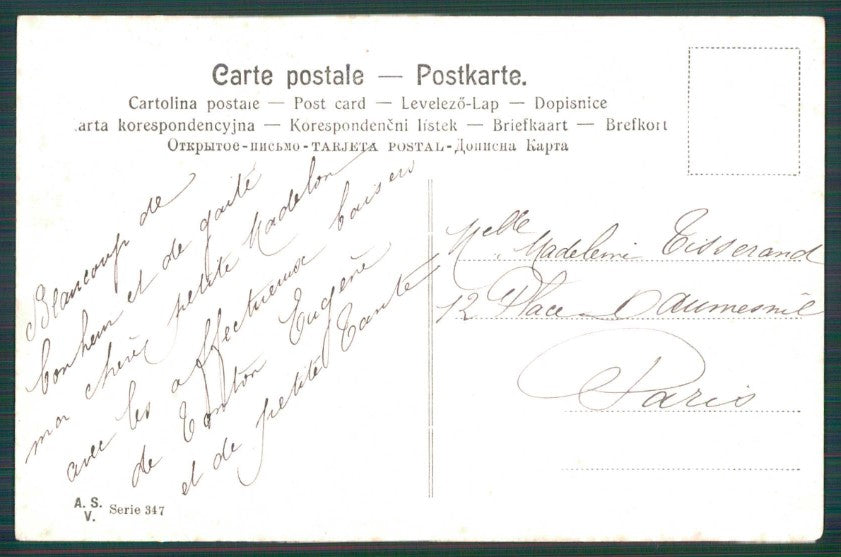 Carte postale — Postkarte.
Cartolina postale — Post card — Levelező-Lap — Dopisnice
.arta korespondencyjna — Korespondenčni listek — Briefkaart — Brefkort
Открытое-письмо-TARJETA POSTAL-Дописна Карта
Beaucoup de
bonheur et de gaité
ma chère petite Madelon
avec les affectueux baisers
de Tonton Eugène
et de petite Tante
Melle Madeleine Tisserand
12 Place Daumesnil
Paris
A. S.
V. Serie 347